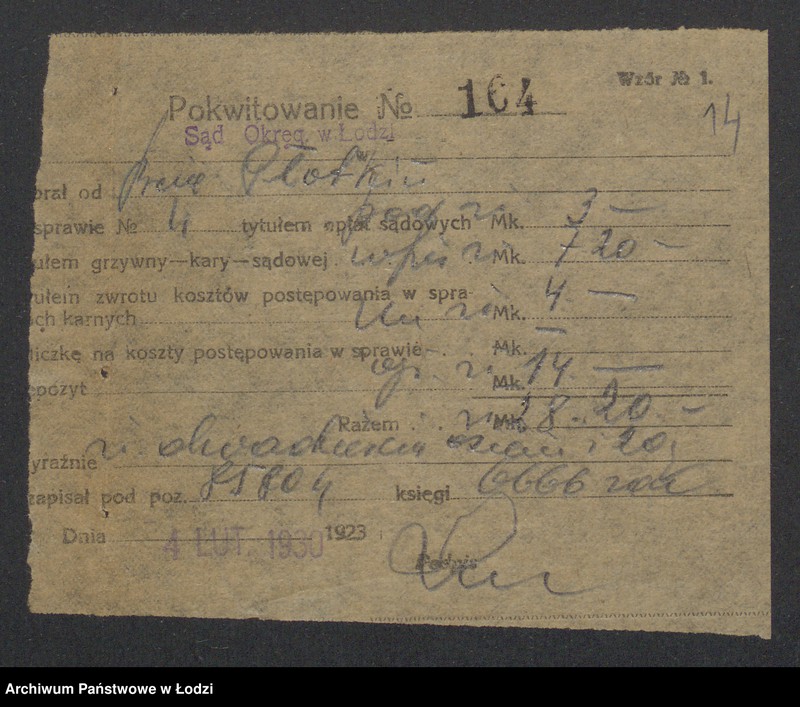 Wzór № 1.
Pokwitowanie № 164
14
Sąd Okręg. w Łodzi
brał od Płotkin
sprawie № 4 tytułem opłat sądowych Mk. 3 —
ułem grzywny—kary—sądowej wpis zł Mk. 7 20 —
tułem zwrotu kosztów postępowania w spra-
ach karnych zł Mk. 4 —
liczkę na koszty postępowania w sprawie Mk. —
epozyt zł. Mk. 14 —
Razem zł Mk. 28.20 —
yraźnie zł. dwadzieścia osiem i 20
zapisał pod poz. 85804 księgi
Dnia 4 LUT. 1930 1923
Podpis
Archiwum Państwowe w Łodzi